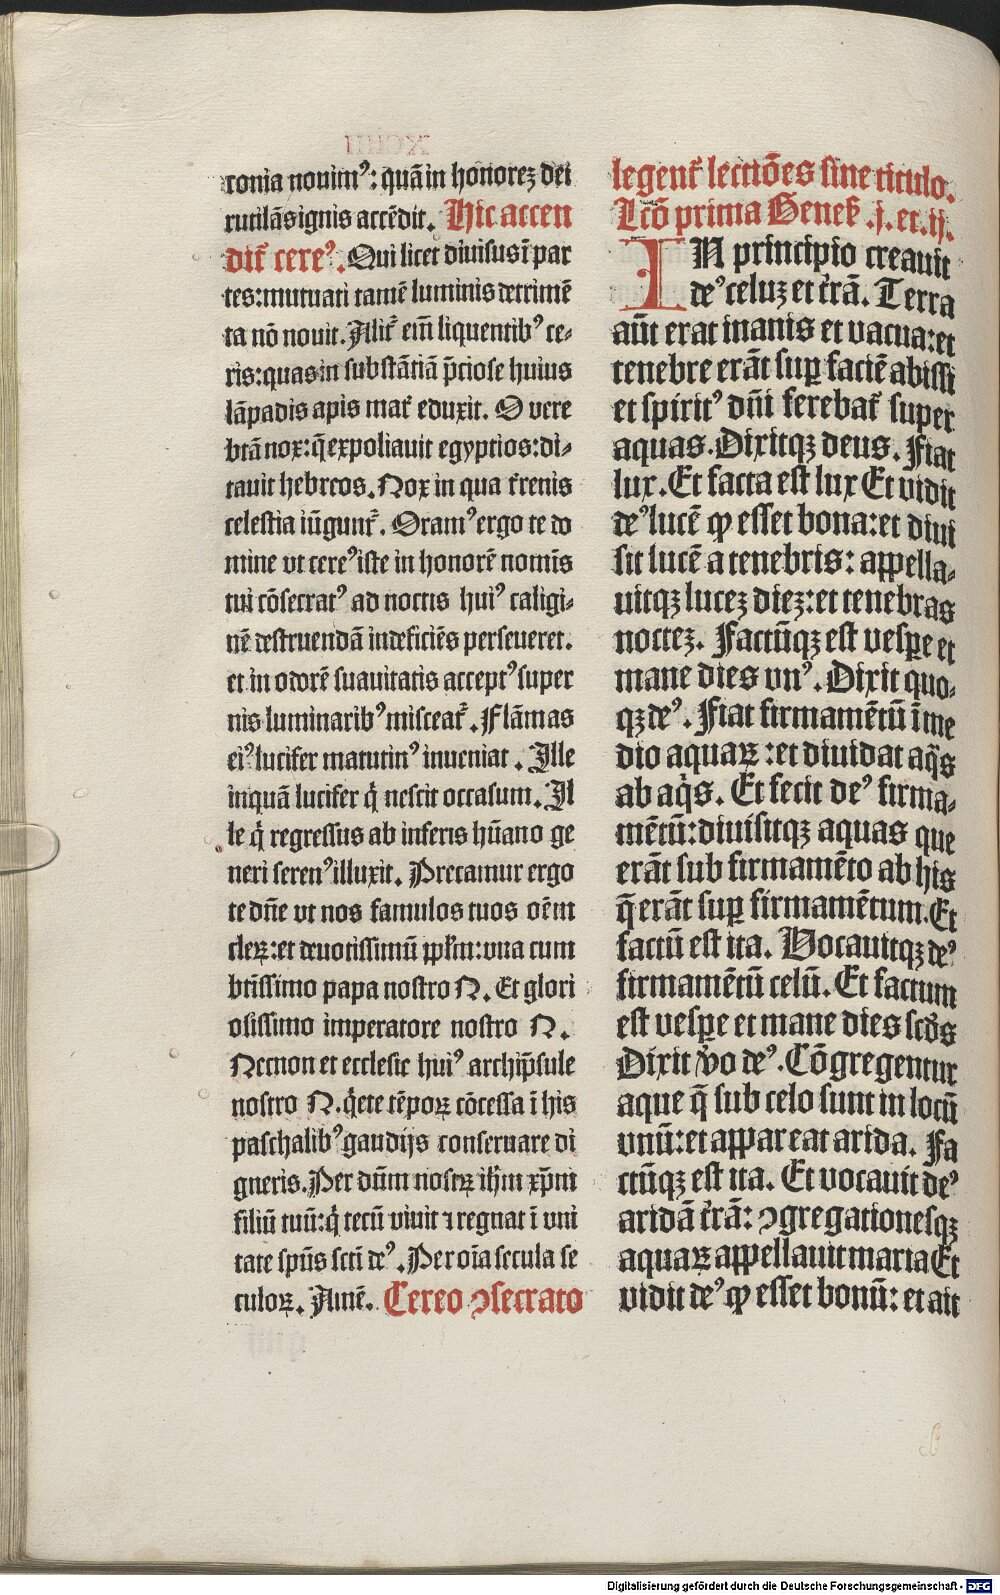 conia nouimꝰ: quā in honorez dei
rutilās ignis accēdit. Hic accen
dit᷑ cereꝰ. Qui licet diuisus ī par
tes: mutuati tamē luminis detrimē
ta nō nouit. Alit᷑ em̄ liquentibꝰ ce-
ris: quas in substātiā p̄ciose huius
lāpadis apis mat᷑ eduxit. O vere
btā nox: q̄ expoliauit egyptios: di-
tauit hebreos. Nox in qua t᷑renis
celestia iūgunt᷑. Oramꝰ ergo te do
mine vt cereꝰ iste in honorē nomīs
tui cōsecratꝰ ad noctis huiꝰ caligi-
nē destruendā indeficiēs perseueret.
et in odorē suauitatis acceptꝰ super
nis luminaribꝰ misceat᷑. Flāmas
eiꝰ lucifer matutinꝰ inueniat. Ille
inquā lucifer q̇ nescit occasum. Il
le q̇ regressus ab inferis hūano ge
neri serenꝰ illuxit. Precamur ergo
te dn̄e vt nos famulos tuos oēm
cleꝝ: et deuotissimū pp̄lm: vna cum
btīssimo papa nostro N. Et glori
osissimo imperatore nostro N.
Necnon et ecclesie huiꝰ archip̄sule
nostro N. q̇ete tēpoꝝ cōcessa ī his
paschalibꝰ gaudijs conseruare di
gneris. Per dn̄m nostꝝ ihm̄ xp̄m
filiū tuū: q̇ tecū viuit ⁊ regnat ī vni
tate sp̄us sc̄ti deꝰ. Per oīa secula se
culoꝝ. Amē. Cereo ꝯsecrato
legent᷑ lectiōes sine titulo.
Lcō prima Geneß .j. et .ij.
IN principio creauit
deꝰ celuz et t᷑rā. Terra
aūt erat inanis et vacua: et
tenebre erāt suꝑ faciē abissi
et spiritꝰ dn̄i ferebat᷑ super
aquas. Dixitqꝫ deus. Fiat
lux. Et facta est lux Et vidit
deꝰ lucē ꝙ esset bona: et diui
sit lucē a tenebris: appella-
uitqꝫ lucez diez: et tenebras
noctez. Factūqꝫ est vesꝑe et
mane dies vnꝰ. Dixit quo-
qꝫ deꝰ. Fiat firmamētū ī me
dio aquaꝝ: et diuidat aq̄s
ab aq̄s. Et fecit deꝰ firma-
mētū: diuisitqꝫ aquas que
erāt sub firmamēto ab his
q̄ erāt suꝑ firmamētum. Et
factū est ita. Vocauitqꝫ deꝰ
firmamētū celū. Et factum
est vesꝑe et mane dies scd̄s
Dixit v̊o deꝰ. Cōgregentur
aque q̄ sub celo sunt in locū
vnū: et appareat arida. Fa
ctūqꝫ est ita. Et vocauit deꝰ
aridā t᷑rā: ꝯgregationesqꝫ
aquaꝝ appellauit maria Et
vidit deꝰ ꝙ esset bonū: et ait
Digitalisierung gefördert durch die Deutsche Forschungsgemeinschaft - DFG